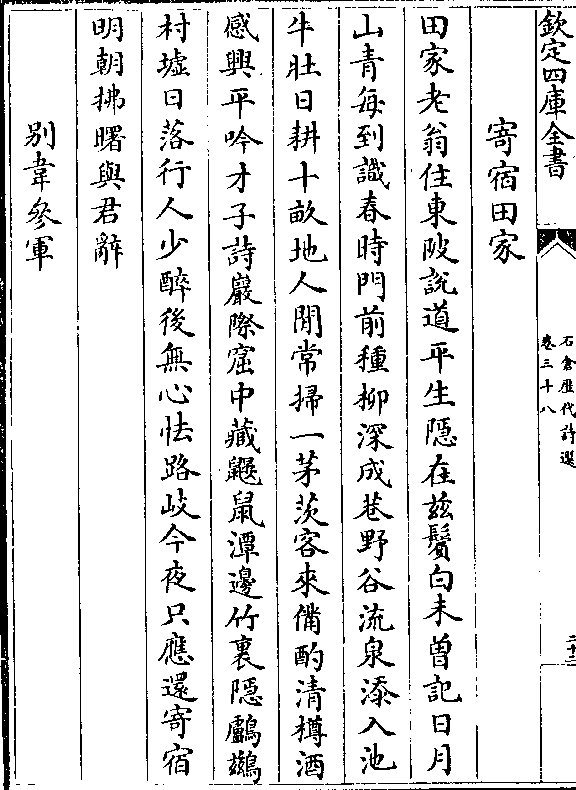 欽定四庫全書
石倉歷代詩選
卷三十八
二十二
寄宿田家
田家老翁住東陂說道平生隱在兹鬢白未曽記日月
山青每到識春時門前種柳深成巷野谷流泉添入池
牛壯日耕十畝地人閒常掃一茅茨客來備酌清樽酒
感興平吟才子詩巖際窟中藏鼴鼠潭邊竹裏隱鸕鷀
村墟日落行人少醉後無心怯路岐今夜只應還寄宿
明朝拂曙與君辭
别韋參軍